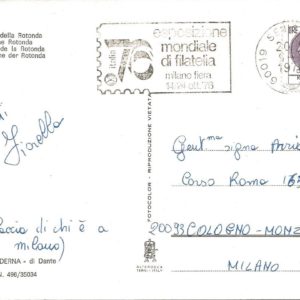 della Rotonda
ne Rotonda
de la Rotonda
me der Rotonda
italia 76
esposizione
mondiale
di filatelia
milano fiera
14/24 ott. '76
60019
20
19
di
Fiorella
FOTOCOLOR - RIPRODUZIONE VIETATA
Gent.ma signa
Corso Roma
20093 COLOGNO-MONZ
MILANO
di chi è a
milano)
DERNA - di Dante
N. 496/35034
ALTEROCCA
TERNI - ITALY